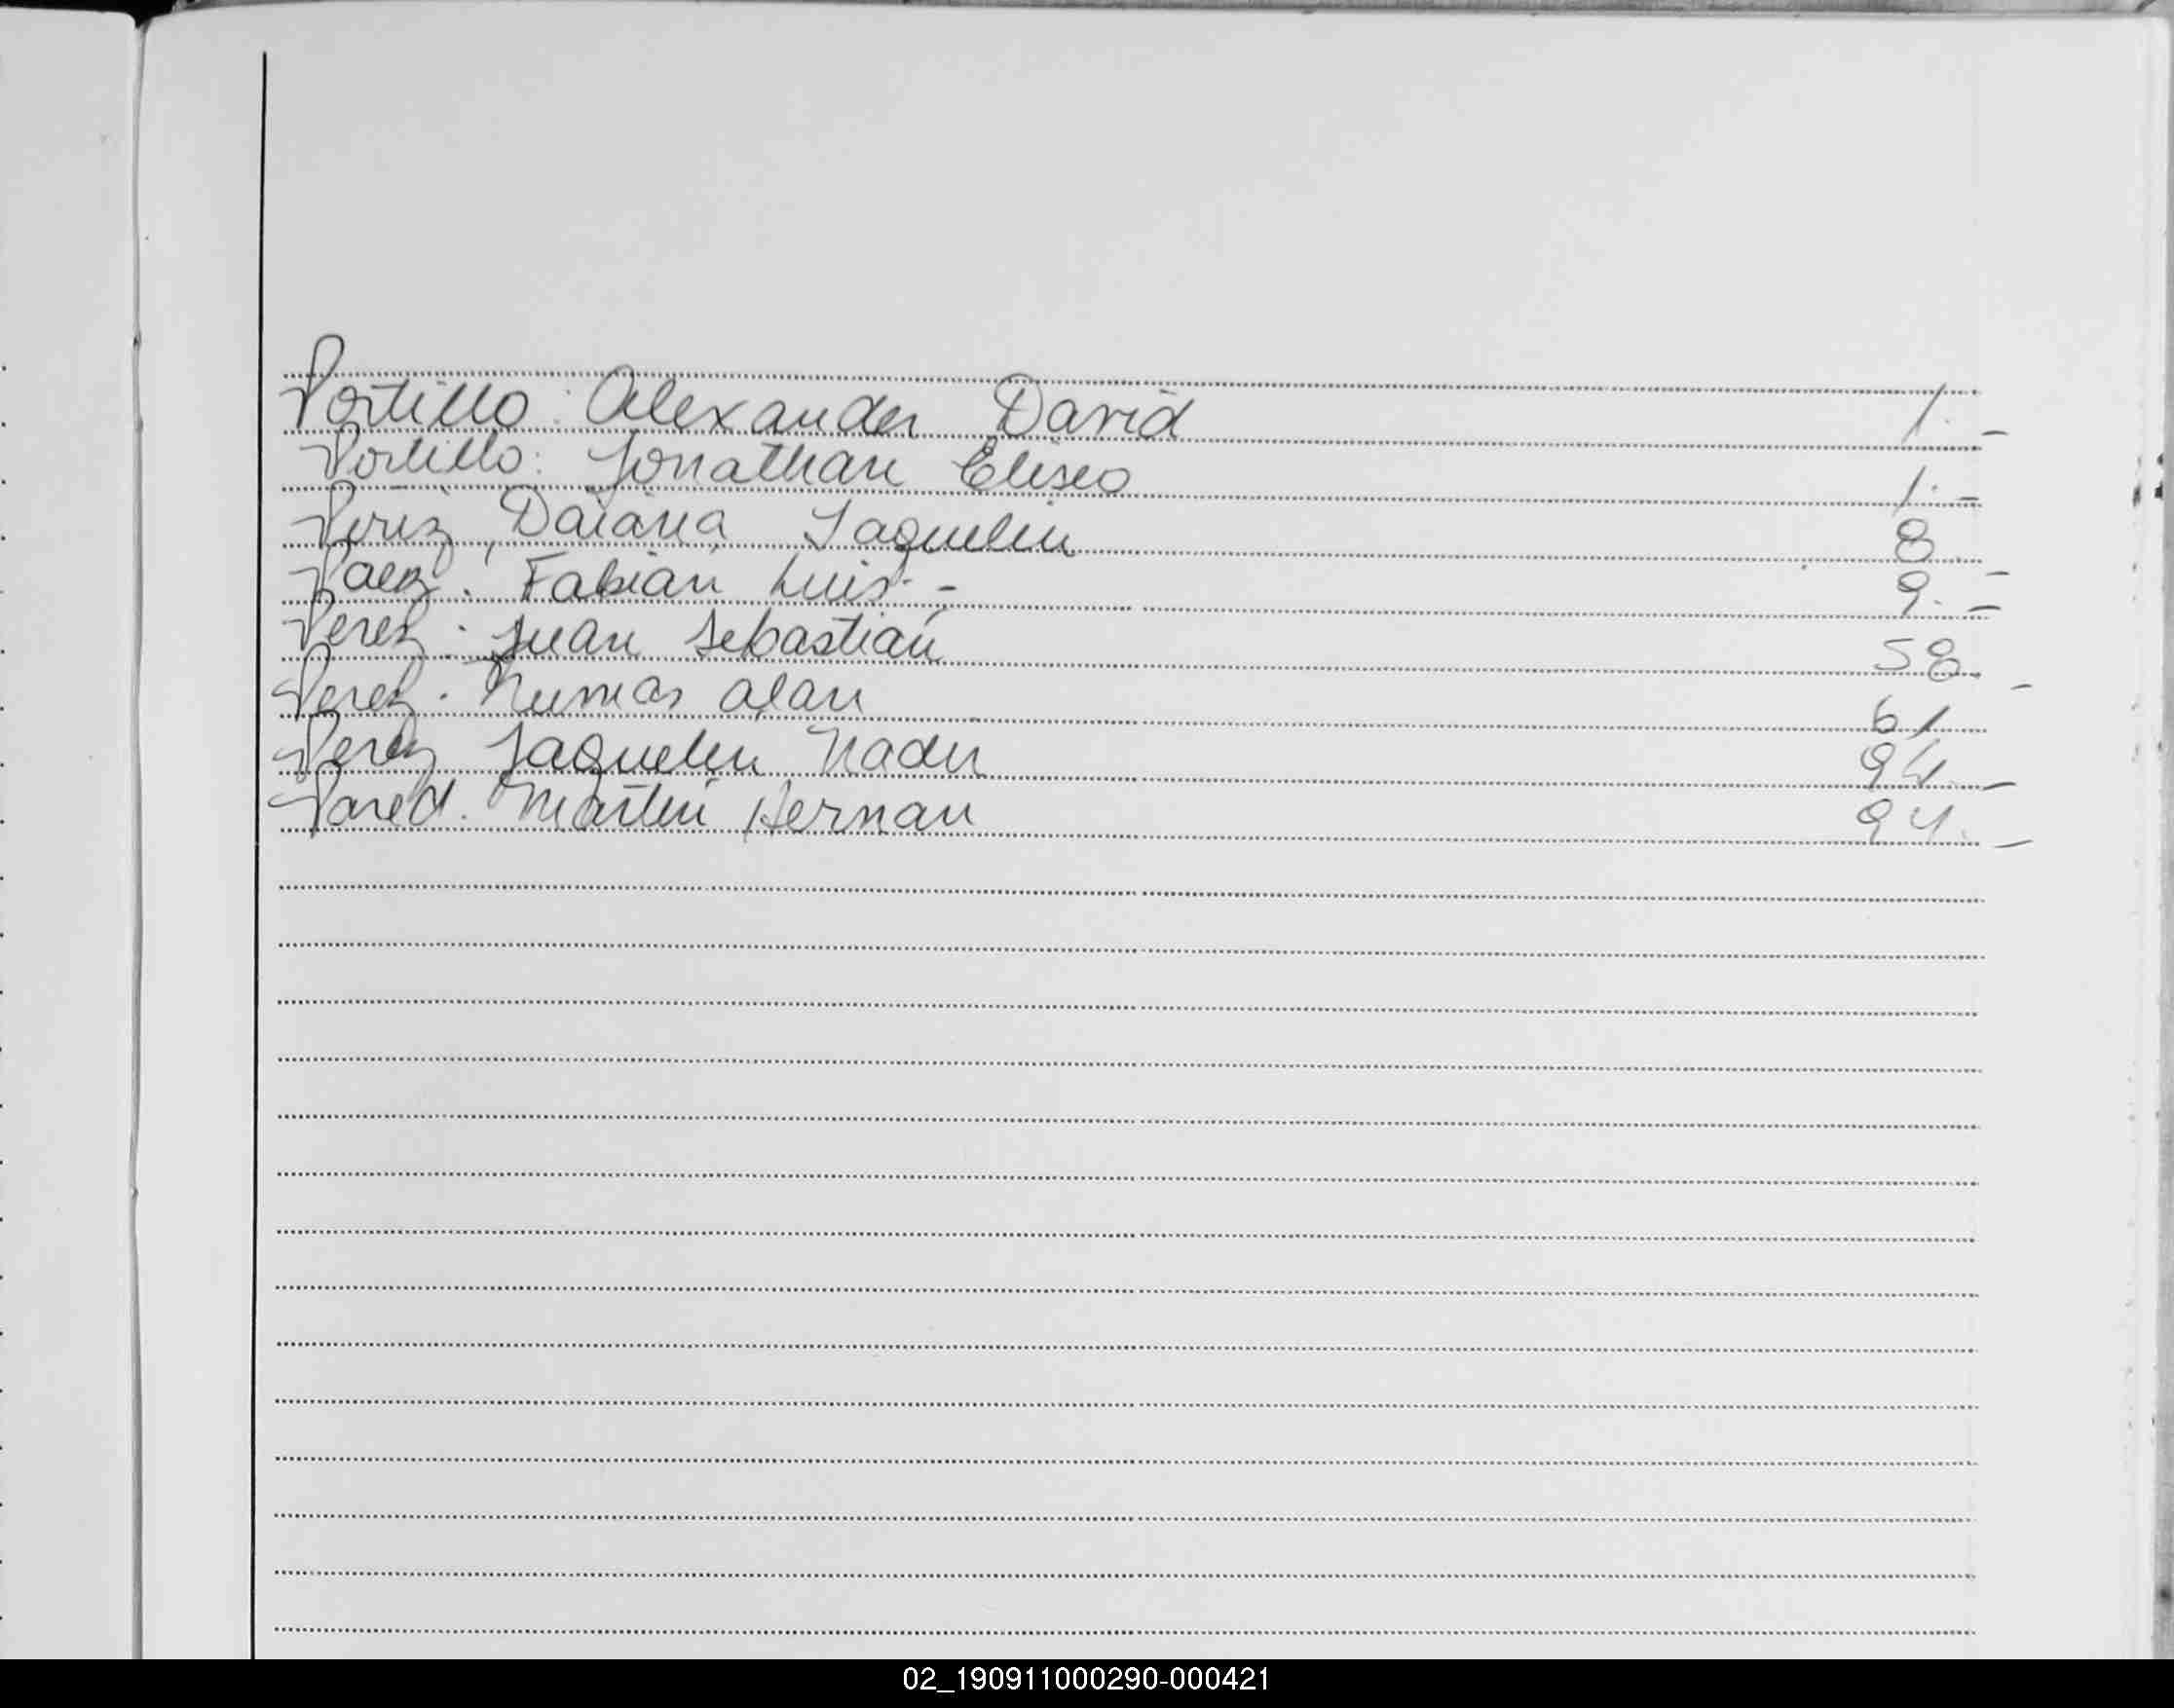 Portillo: Alexander David 1.-
Portillo: Jonathan Eliseo 1.-
Perez, Daiana Jaquelin 8.-
Paez. Fabian Luis.- 9.-
Perez. Juan Sebastian 58.-
Perez. Alan 61
Perez Jaquelin Nadir 94.-
Pared. Martin Hernan 94.-
02_190911000290-000421